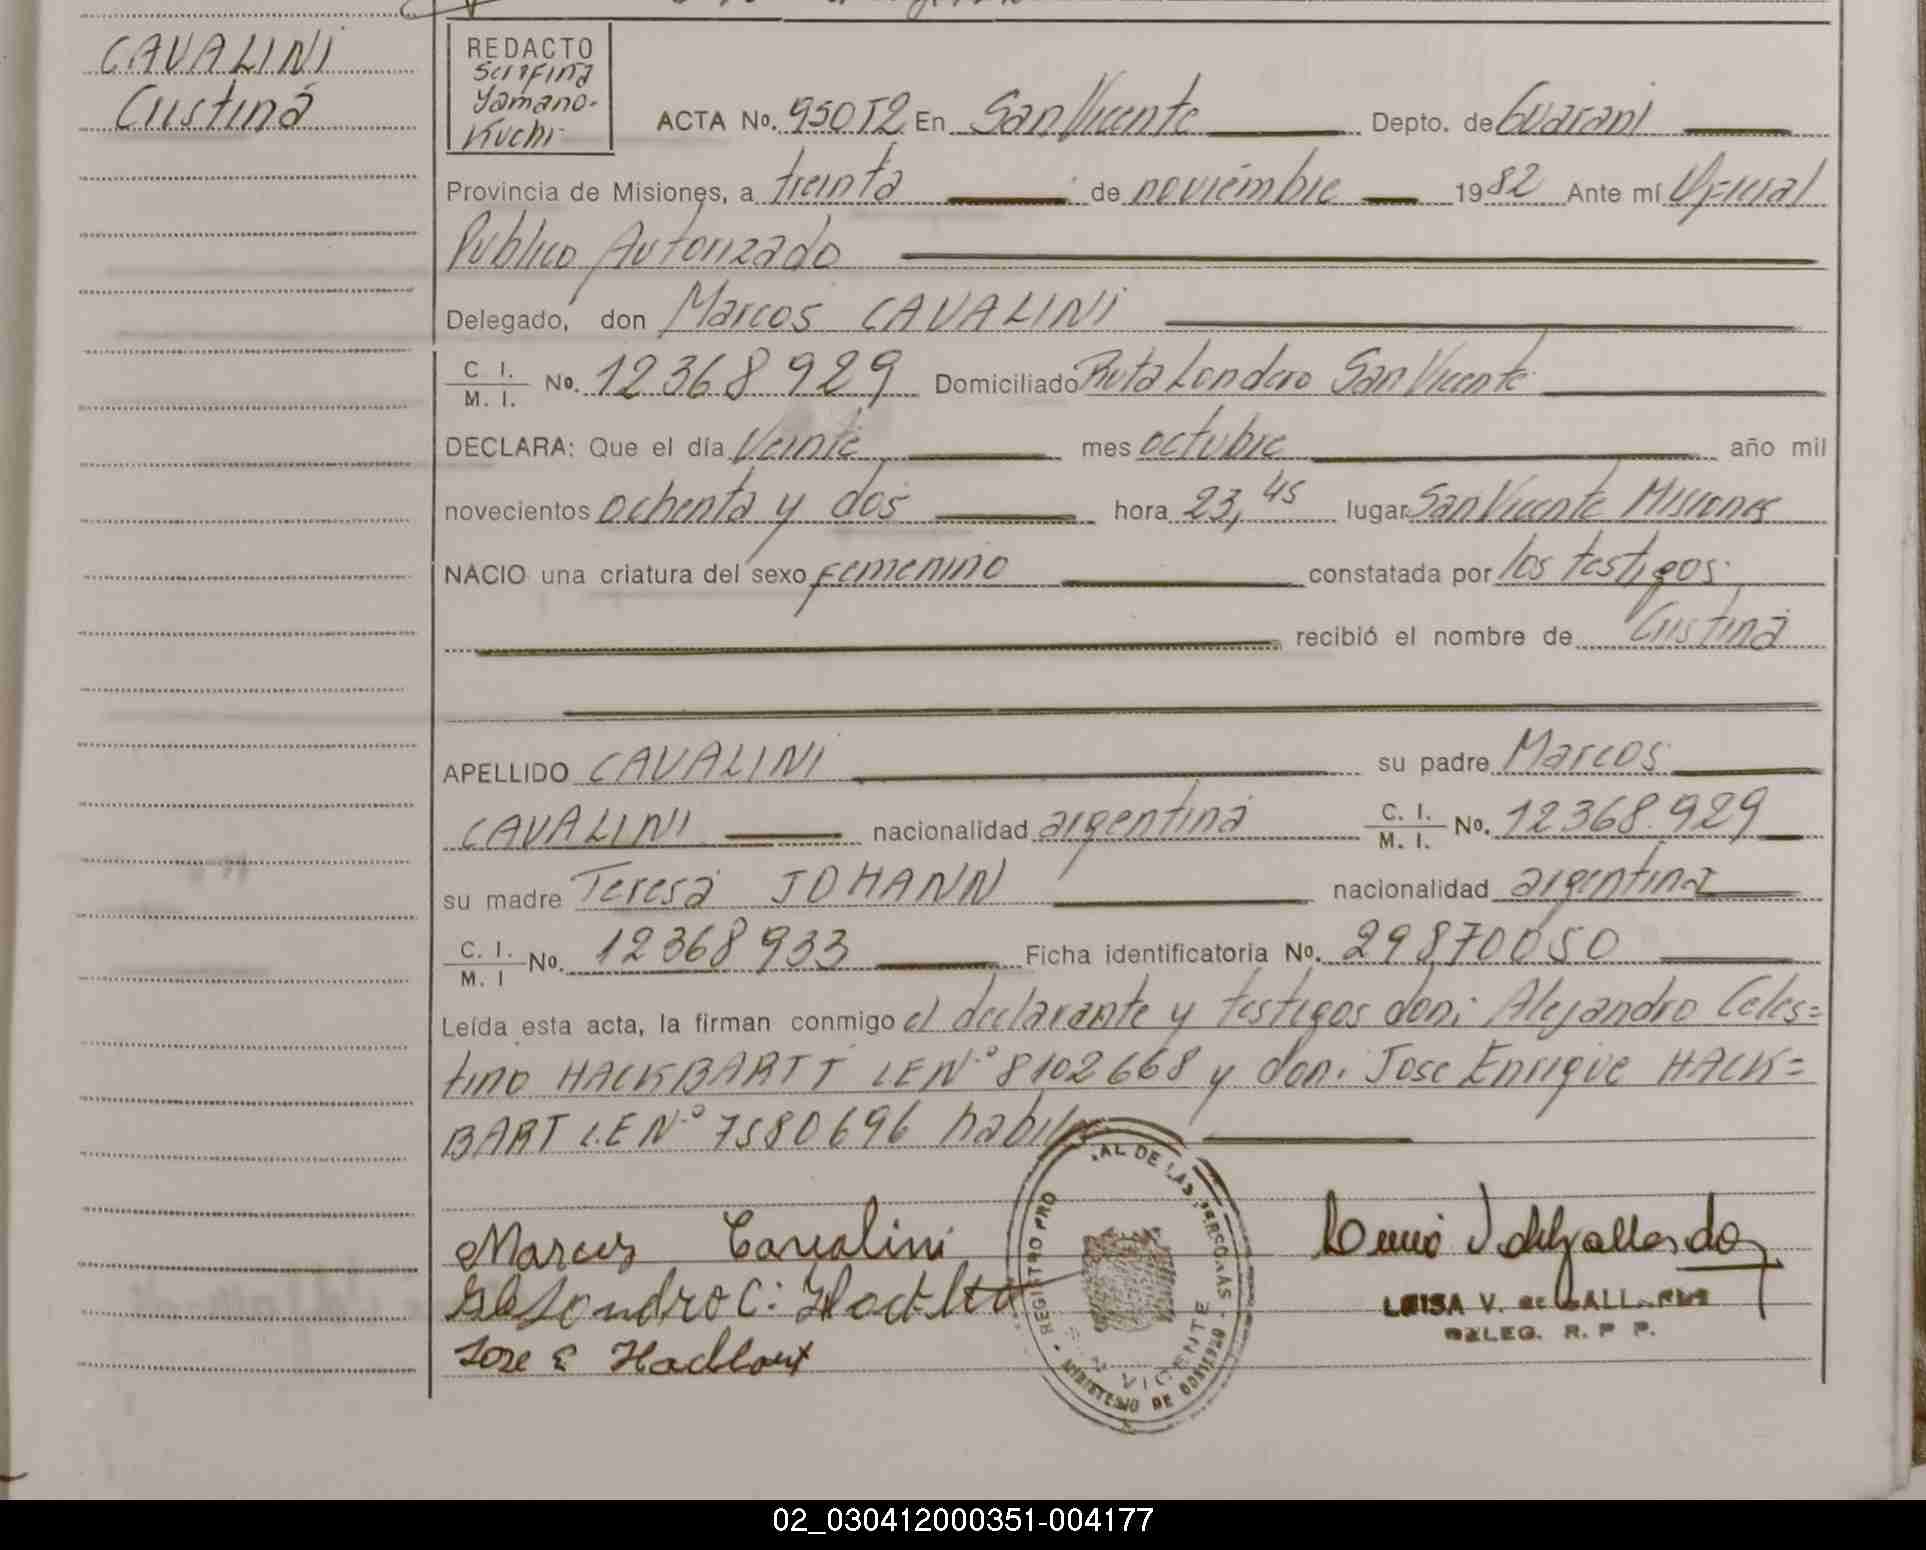 CAVALINI
Cristina
REDACTO
Serefina
Yamano-
Kuchi
ACTA No. 950T2 En San Vicente Depto. de Guarani
Provincia de Misiones, a treinta de noviembre 1982 Ante mí Oficial
Publico Autorizado
Delegado, don Marcos CAVALINI
C. I.
M. I. No. 12368929 Domiciliado Ruta Londero San Vicente
DECLARA: Que el día Veinte mes octubre año mil
novecientos ochenta y dos hora 23,45 lugar San Vicente Misiones
NACIO una criatura del sexo femenino constatada por los testigos
recibió el nombre de Cristina
APELLIDO CAVALINI su padre Marcos
CAVALINI nacionalidad argentina C. I.
M. I. No. 12368.929
su madre Teresa JOHANN nacionalidad argentina
C. I.
M. I No. 12368933 Ficha identificatoria No. 29870050
Leída esta acta, la firman conmigo el declarante y testigos don: Alejandro Celes=
tino HACKBARTT LEN° 8102668 y don: Jose Enrique HACK=
BART L.E N° 7580696 habiles
Marcos Cavalini
Jose E Hackbart
REGISTRO PRO AL DE LAS PERSONAS
SAN VICENTE
MINISTERIO DE GOBIERNO
LUISA V. de GALLARDO
DELEG. R. P P.
02_030412000351-004177